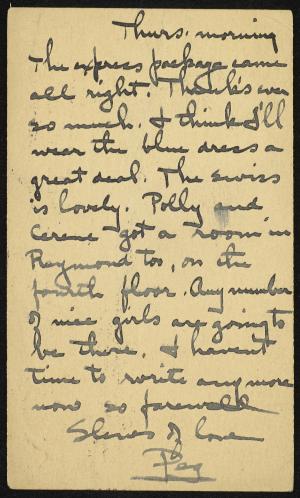 Thurs. morning
The express package came
all right. Thanks ever
so much. I think I'll
wear the blue dress a
great deal. The swiss
is lovely. Polly and
Cerene got a room in
Raymond too, on the
fourth floor. Any number
of nice girls are going to
be there. I haven't
time to write any more
now so farewell
Slews of love
Peg